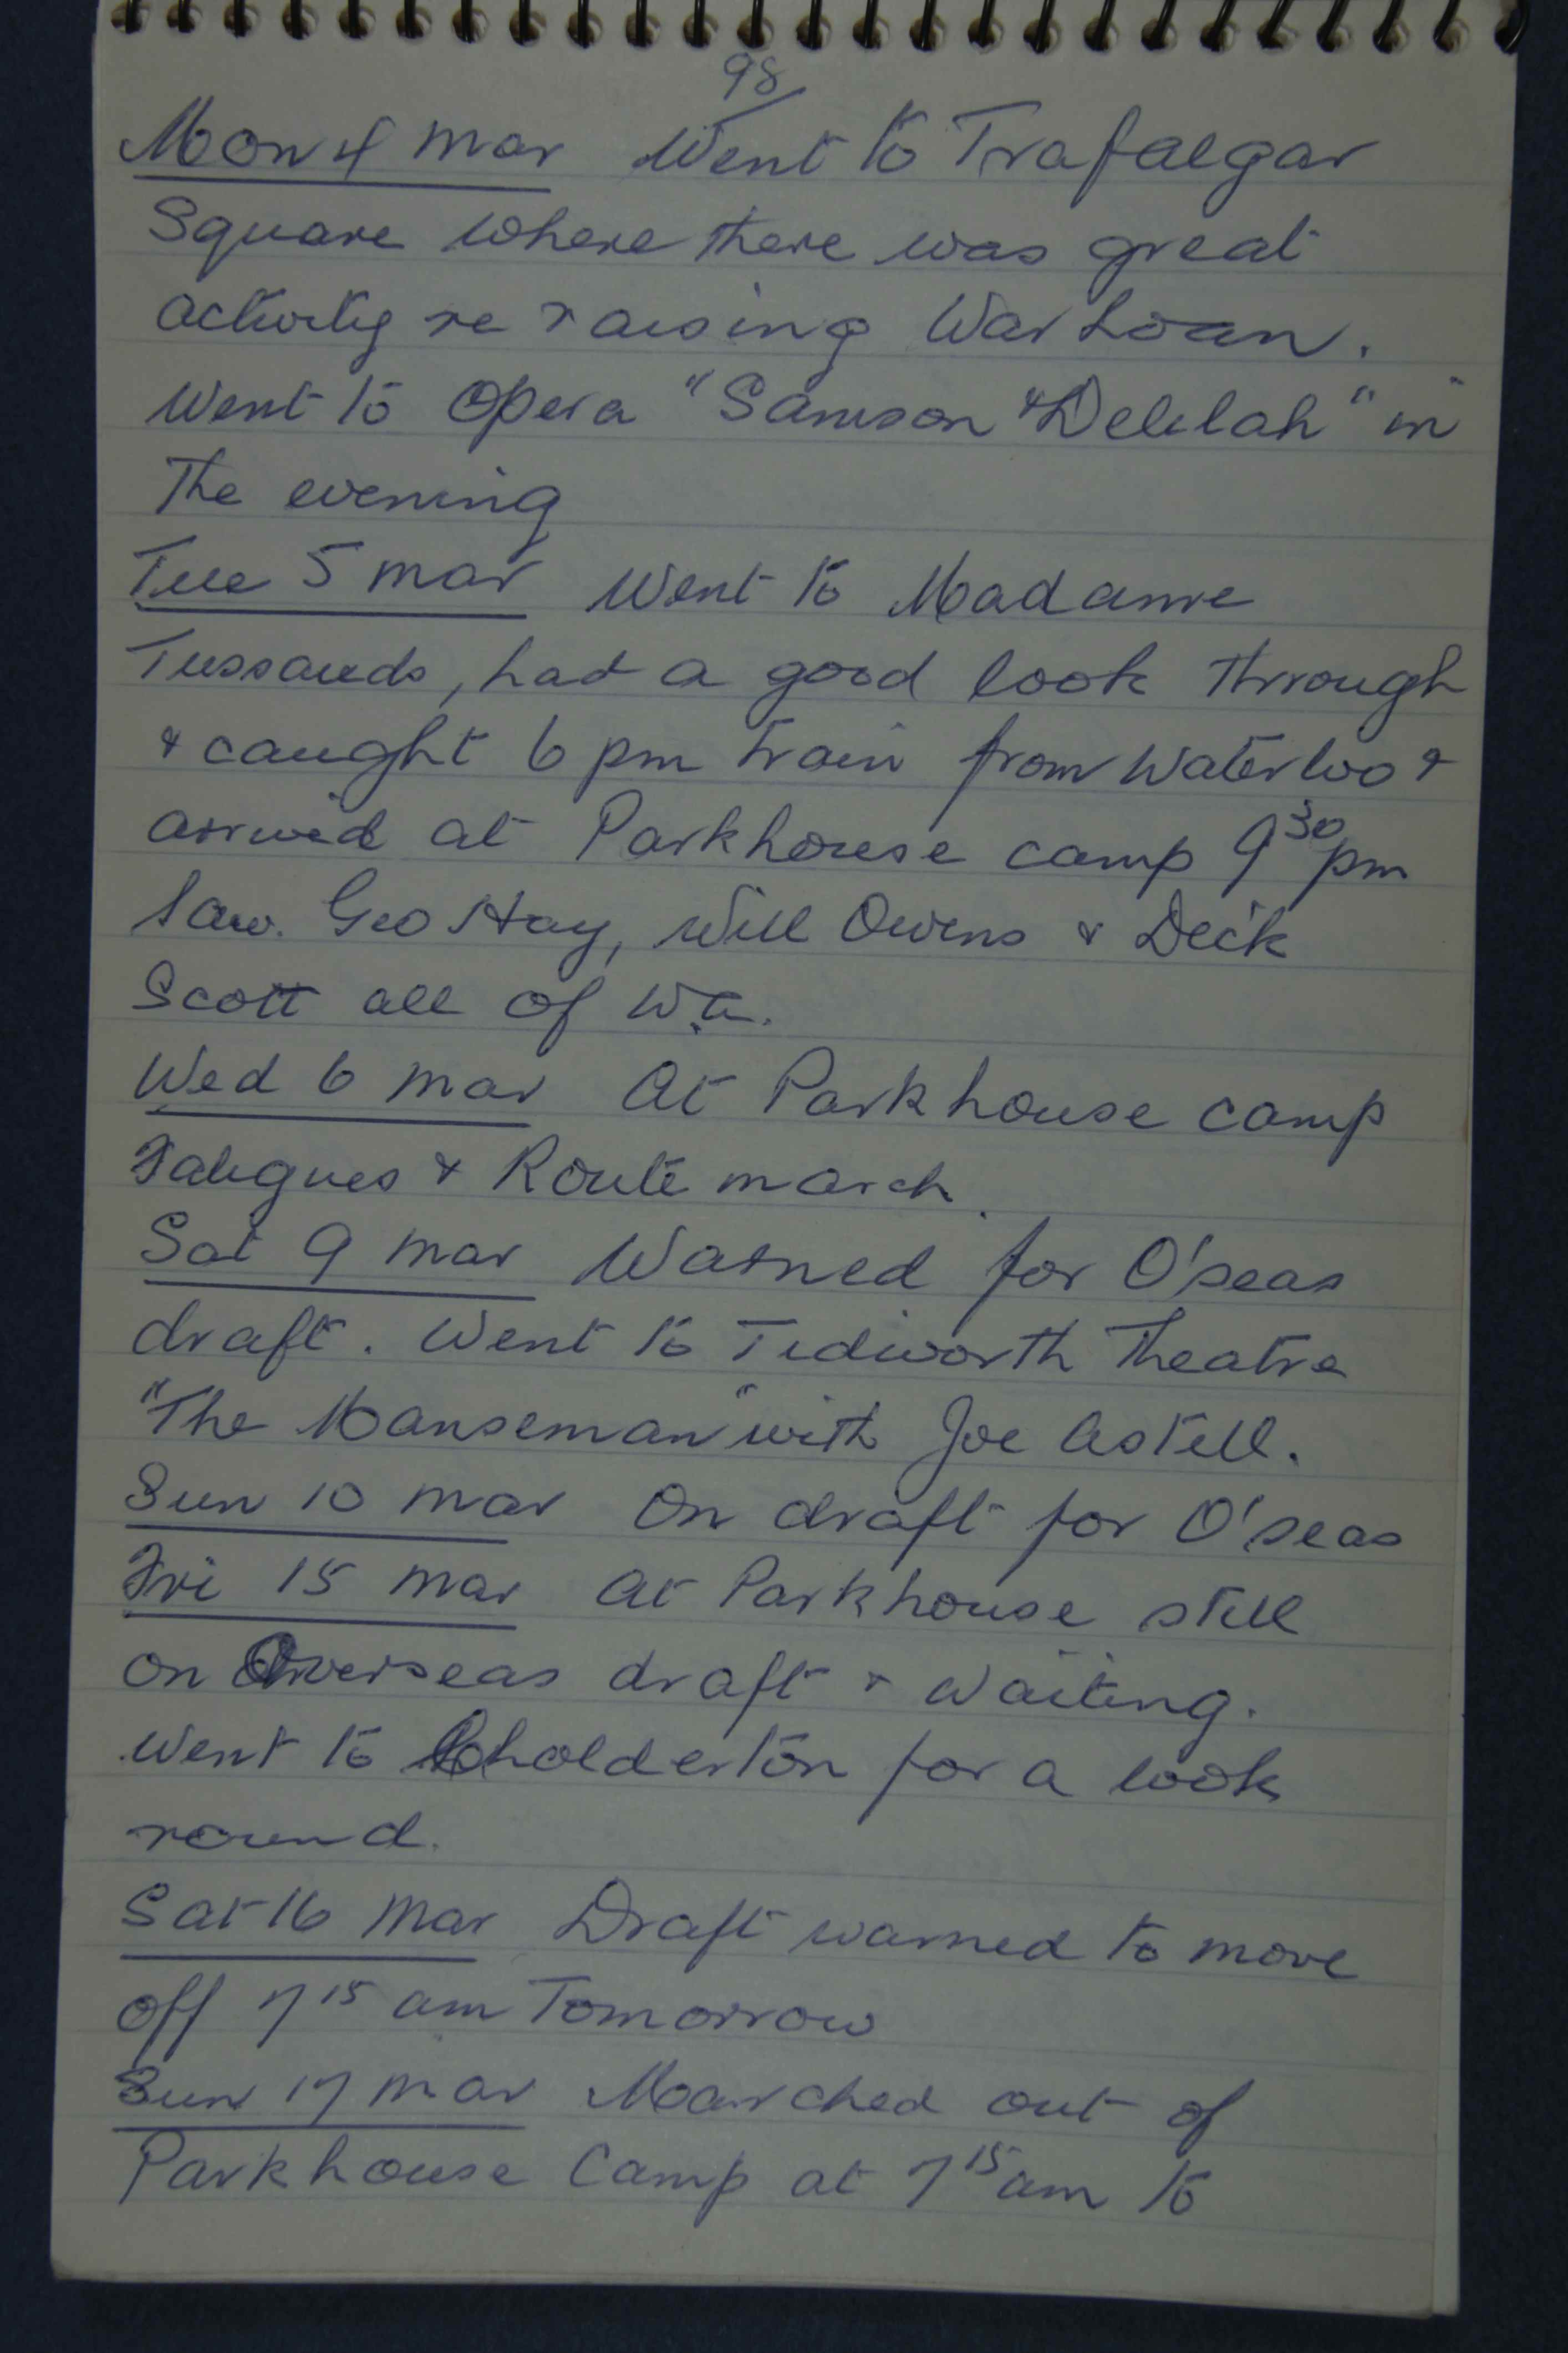 98
Mon 4 Mar Went to Trafalgar
Square where there was great
activity re raising War Loan.
Went to Opera "Samson & Delilah" in
the evening
Tue 5 Mar Went to Madame
Tussauds, had a good look through
& caught 6 pm train from Waterloo &
arrived at Parkhouse camp 9³⁰pm
Saw. Geo Hay, Will Owens & Dick
Scott all of W.A.
Wed 6 Mar At Parkhouse camp
Fatigues & Route march.
Sat 9 Mar Warned for O'seas
draft. Went to Tidworth Theatre
"The Manseman" with Joe Astell.
Sun 10 Mar On draft for O'seas
Fri 15 Mar At Parkhouse still
on Overseas draft & waiting.
Went to Cholderton for a look
round.
Sat 16 Mar Draft warned to move
off 7¹⁵ am Tomorrow
Sun 17 Mar Marched out of
Parkhouse Camp at 7¹⁵am to